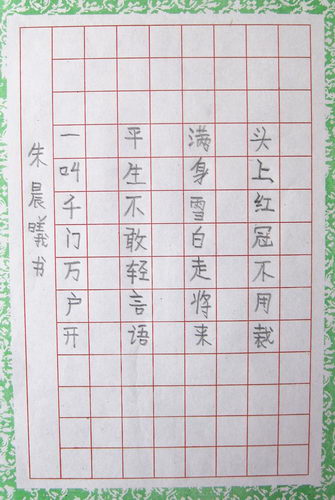 头上红冠不用裁
满身雪白走将来
平生不敢轻言语
一叫千门万户开
朱晨曦书